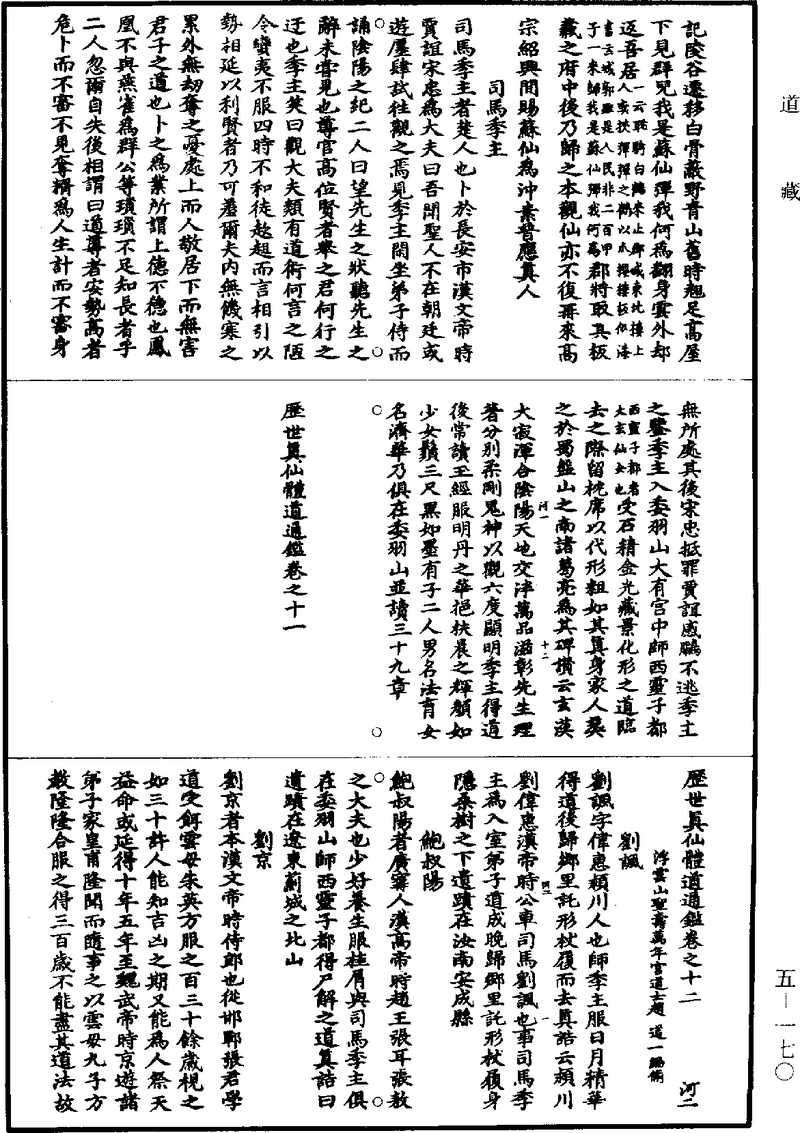 記陵谷遷移白骨蔽野青山舊時翹足高屋
下見群兒我是蘇仙彈我何為翻身雲外却
返吾居一云耽駒白鶴來止郡城東北樓上
人或挾彈彈之鶴以爪攫樓板似漆
書云城郭雖是人民非三百甲
子一來歸我是蘇仙彈我何為郡將取其板
藏之府中後乃歸之本觀仙亦不復再來高
宗紹興間賜蘇仙為沖素普應真人
司馬季主
司馬季主者楚人也卜於長安市漢文帝時
賈誼宋忠為大夫曰吾聞聖人不在朝廷或
遊廛肆試往觀之焉見季主閑坐弟子侍而
誦陰陽之紀二人曰望先生之狀聽先生之
辭未嘗見也尊官高位賢者舉之君何行之
迂也季主笑曰觀大夫類有道術何言之陋
令蠻夷不服四時不和徒趑趄而言相引以
勢相延以利賢者乃可羞爾夫內無饑寒之
累外無劫奪之憂處上而人敬居下而無害
君子之道也卜之為業所謂上德不德也鳳
凰不與燕雀為群公等瑣瑣不足知長者乎
二人忽爾自失後相謂曰道尊者安勢高者
危卜而不審不見奪糈為人生計而不審身
無所處其後宋忠抵罪賈誼感鵩不逃季主
之鑒季主入委羽山大有宮中師西靈子都
西靈子都者
太玄仙女也受石精金光藏景化形之道臨
去之際留枕席以代形粗如其真身家人葬
之於蜀盤山之南諸葛亮為其碑讚云玄漠
大寂渾合陰陽天地交泮萬品滋彰先生理
著分別柔剛鬼神以觀六度顯明季主得道
後常讀玉經服明丹之華挹扶晨之輝顏如
少女鬚三尺黑如墨有子二人男名法育女
名濟華乃俱在委羽山並讀三十九章
歷世真仙體道通鑑卷之十一
歷世真仙體道通鑑卷之十二 河二
浮雲山聖壽萬年宮道士趙道一編修
劉諷
劉諷字偉惠潁川人也師季主服日月精華
得道後歸鄉里託形杖履而去真誥云潁川
劉偉惠漢帝時公車司馬劉諷也事司馬季
主為入室弟子道成晚歸鄉里託形杖履身
隱桑樹之下遺蹟在汝南安成縣
鮑叔陽
鮑叔陽者廣寧人漢高帝時趙王張耳張敖
之大夫也少好養生服桂屑與司馬季主俱
在委羽山師西靈子都得尸解之道真誥曰
遺蹟在遼東薊城之北山
劉京
劉京者本漢文帝時侍郎也從邯鄲張君學
道受餌雲母朱英方服之百三十餘歲視之
如三十許人能知吉凶之期又能為人祭天
益命或延得十年五年至魏武帝時京遊諸
弟子家皇甫隆聞而隨事之以雲母九子方
教隆隆合服之得三百歲不能盡其道法故
道藏
五－一七〇